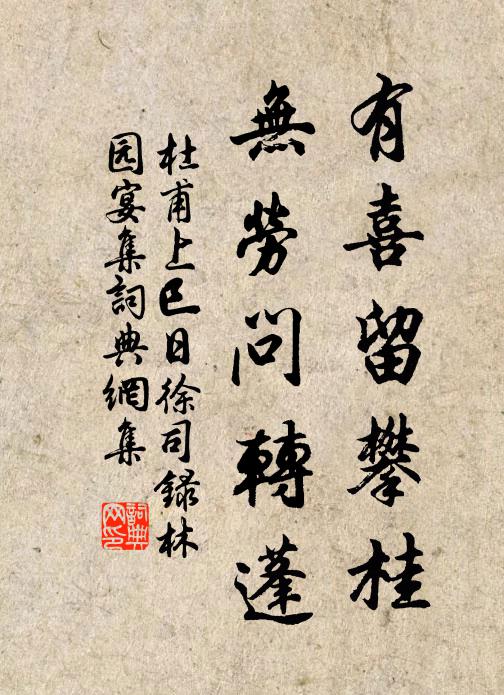 有喜留攀桂
無勞問轉蓬
杜甫上巳日徐司録林
园宴集詞典網集
詞典
网印